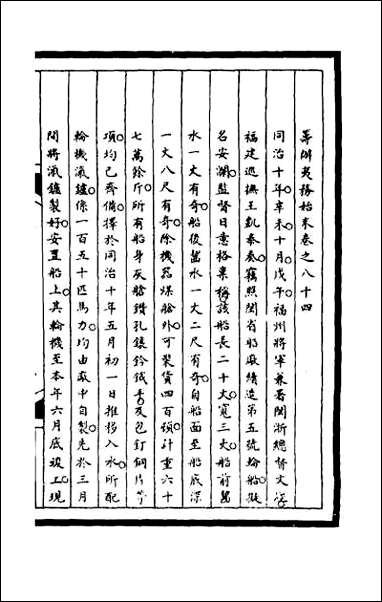 籌辦夷務始末卷之八十四
同治十年辛未十月戊午福州將軍兼署閩浙總督文煜
福建巡撫王凱泰奏竊照閩省船廠續造第五號輪船擬
名安瀾監督日意格稟稱該船長二十丈寬三丈船前喫
水一丈有奇船後喫水一丈二尺有奇自船面至船底深
一丈八尺有奇除機器煤艙外可裝貨四百頓計重六十
七萬餘斤所有船身灰艙鑽孔鑲鈐鐵脅及包釘銅片等
項均已齊備擇於同治十年五月初一日推移入水所配
輪機汽鑪係一百五十匹馬力均由廠中自製先於三月
間將汽鑪製好安置船上其輪機至本年六月底竣工現